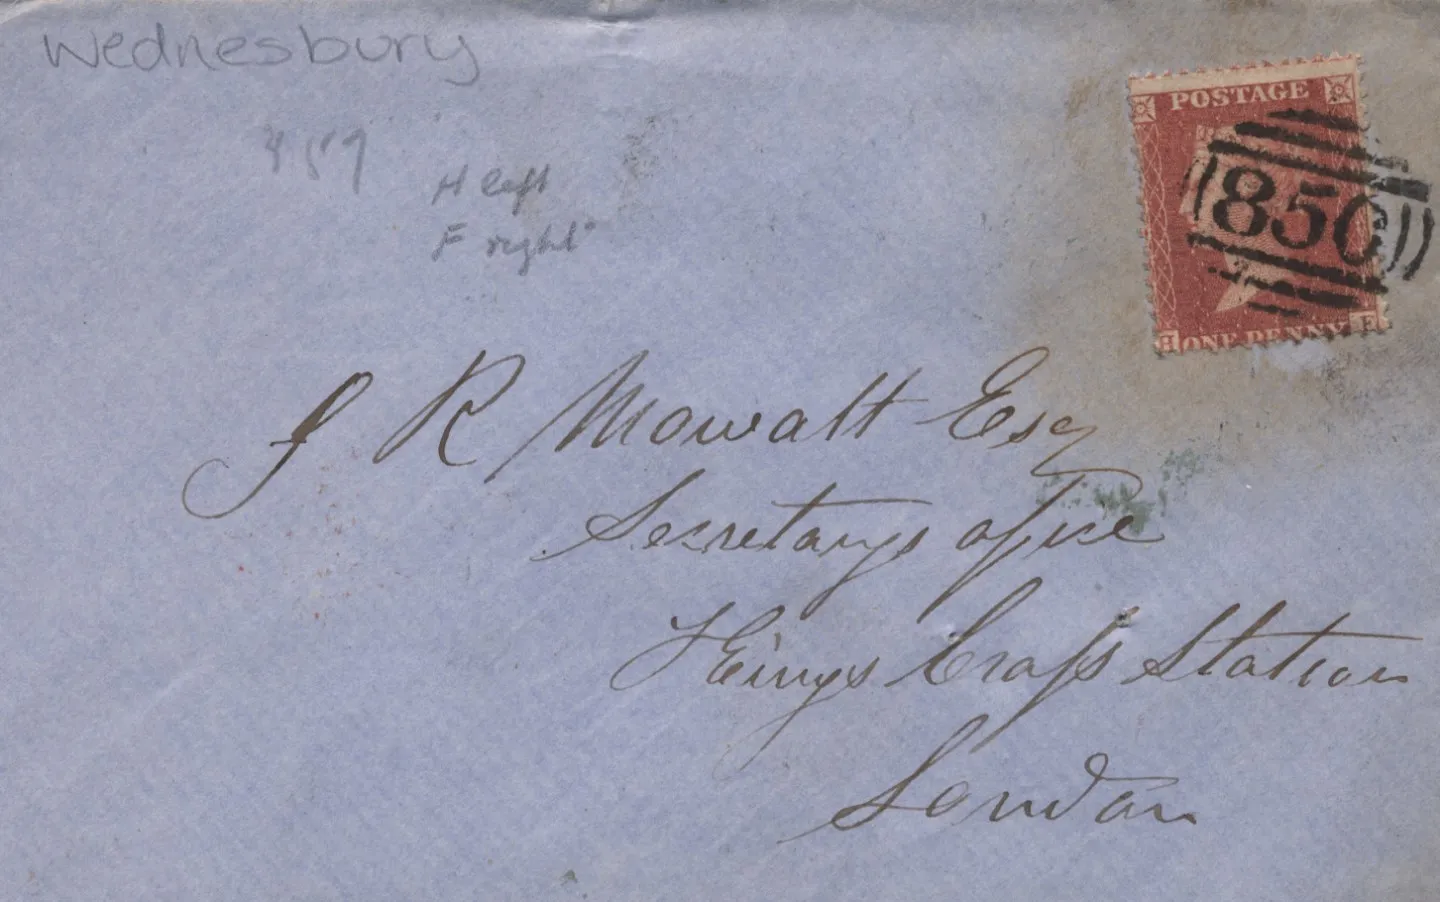 Wednesbury
457
H left
F right
POSTAGE
850
H ONE PENNY F
J R Mowatt Esq
Secretarys office
Kings Cross Station
London